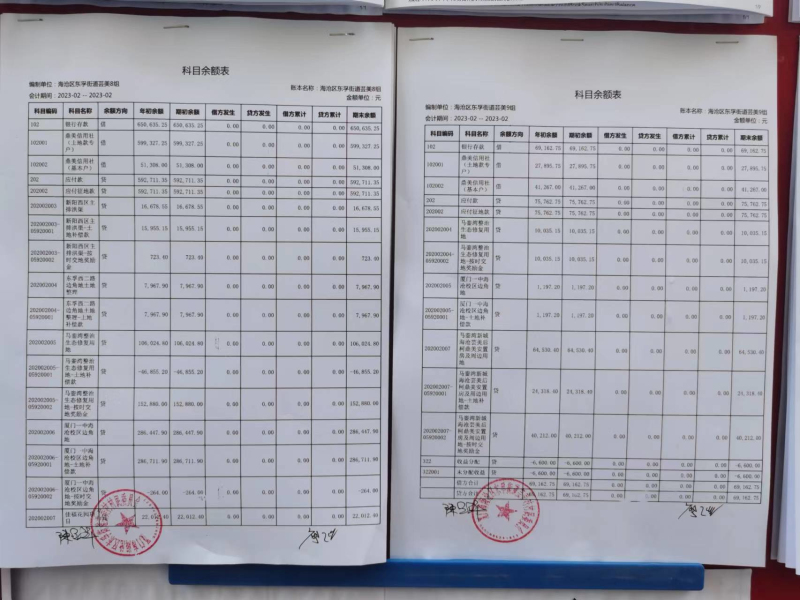 科目余额表
编制单位：海沧区东孚街道芸美8组
账本名称：海沧区东孚街道芸美8组
会计期间：2023-02 -- 2023-02
金额单位：元
科目编码 科目名称 余额方向 年初余额 期初余额 借方发生 贷方发生 借方累计 贷方累计 期末余额
102 银行存款 借 650,635.25 650,635.25 0.00 0.00 0.00 0.00 650,635.25
102001 鼎美信用社（土地款专户） 借 599,327.25 599,327.25 0.00 0.00 0.00 0.00 599,327.25
102002 鼎美信用社（基本户） 借 51,308.00 51,308.00 0.00 0.00 0.00 0.00 51,308.00
202 应付款 贷 592,711.35 592,711.35 0.00 0.00 0.00 0.00 592,711.35
202002 应付征地款 贷 592,711.35 592,711.35 0.00 0.00 0.00 0.00 592,711.35
202002003 新阳西区主排洪渠 贷 16,678.55 16,678.55 0.00 0.00 0.00 0.00 16,678.55
202002003-05920001 新阳西区主排洪渠-土地补偿款 贷 15,955.15 15,955.15 0.00 0.00 0.00 0.00 15,955.15
202002003-05920002 新阳西区主排洪渠-按时交地奖励金 贷 723.40 723.40 0.00 0.00 0.00 0.00 723.40
202002004 东孚西二路边角地土地整理 贷 7,967.90 7,967.90 0.00 0.00 0.00 0.00 7,967.90
202002004-05920001 东孚西二路边角地土地整理-土地补偿款 贷 7,967.90 7,967.90 0.00 0.00 0.00 0.00 7,967.90
202002005 马銮湾整治生态修复用地 贷 106,024.80 106,024.80 0.00 0.00 0.00 0.00 106,024.80
202002005-05920001 马銮湾整治生态修复用地-土地补偿款 贷 -46,855.20 -46,855.20 0.00 0.00 0.00 0.00 -46,855.20
202002005-05920002 马銮湾整治生态修复用地-按时交地奖励金 贷 152,880.00 152,880.00 0.00 0.00 0.00 0.00 152,880.00
202002006 厦门一中海沧校区边角地 贷 286,447.90 286,447.90 0.00 0.00 0.00 0.00 286,447.90
202002006-05920001 厦门一中海沧校区边角地-土地补偿款 贷 286,711.90 286,711.90 0.00 0.00 0.00 0.00 286,711.90
202002006-05920002 厦门一中海沧校区边角地-按时交地奖励金 贷 -264.00 -264.00 0.00 0.00 0.00 0.00 -264.00
202002007 22,012.40 22,012.40 0.00 0.00 0.00 0.00 22,012.40
科目余额表
编制单位：海沧区东孚街道芸美9组
账本名称：海沧区东孚街道芸美9组
会计期间：2023-02 -- 2023-02
金额单位：元
科目编码 科目名称 余额方向 年初余额 期初余额 借方发生 贷方发生 借方累计 贷方累计 期末余额
102 银行存款 借 69,162.75 69,162.75 0.00 0.00 0.00 0.00 69,162.75
102001 鼎美信用社（土地款专户） 借 27,895.75 27,895.75 0.00 0.00 0.00 0.00 27,895.75
102002 鼎美信用社（基本户） 借 41,267.00 41,267.00 0.00 0.00 0.00 0.00 41,267.00
202 应付款 贷 75,762.75 75,762.75 0.00 0.00 0.00 0.00 75,762.75
202002 应付征地款 贷 75,762.75 75,762.75 0.00 0.00 0.00 0.00 75,762.75
202002004 马銮湾整治生态修复用地 贷 10,035.15 10,035.15 0.00 0.00 0.00 0.00 10,035.15
202002004-05920002 马銮湾整治生态修复用地-按时交地奖励金 贷 10,035.15 10,035.15 0.00 0.00 0.00 0.00 10,035.15
202002005 厦门一中海沧校区边角地 贷 1,197.20 1,197.20 0.00 0.00 0.00 0.00 1,197.20
202002005-05920001 厦门一中海沧校区边角地-土地补偿款 贷 1,197.20 1,197.20 0.00 0.00 0.00 0.00 1,197.20
202002007 马銮湾新城海沧芸美后柯鼎美安置房及周边用地 贷 64,530.40 64,530.40 0.00 0.00 0.00 0.00 64,530.40
202002007-05920001 马銮湾新城海沧芸美后柯鼎美安置房及周边用地-土地补偿款 贷 24,318.40 24,318.40 0.00 0.00 0.00 0.00 24,318.40
202002007-05920002 马銮湾新城海沧芸美后柯鼎美安置房及周边用地-按时交地奖励金 贷 40,212.00 40,212.00 0.00 0.00 0.00 0.00 40,212.00
322 收益分配 贷 -6,600.00 -6,600.00 0.00 0.00 0.00 0.00 -6,600.00
322001 未分配收益 贷 -6,600.00 -6,600.00 0.00 0.00 0.00 0.00 -6,600.00
借方合计 69,162.75 69,162.75 0.00 0.00 0.00 0.00 69,162.75
贷方合计 69,162.75 69,162.75 0.00 0.00 0.00 0.00 69,162.75